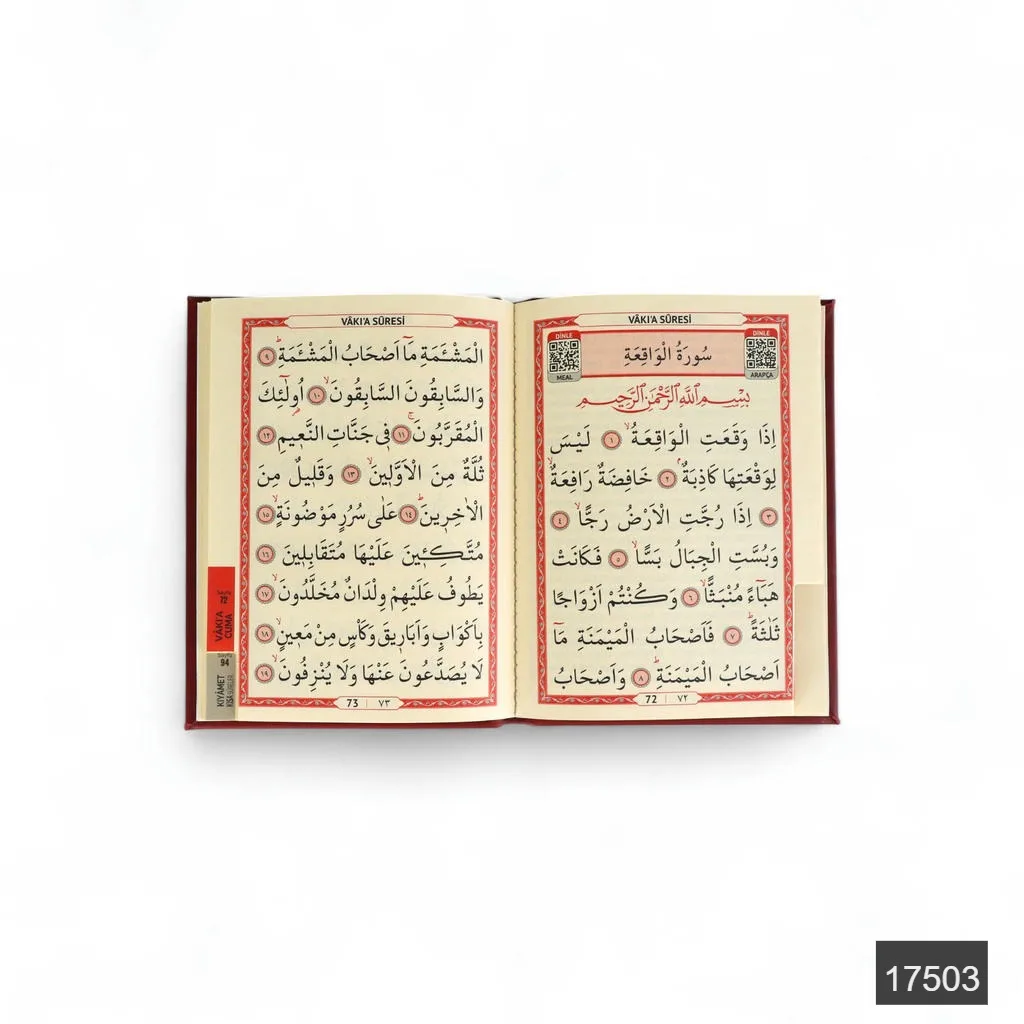 VÂKI'A SÛRESİ
DİNLE
سُورَةُ الْوَاقِعَةِ
DİNLE
ARAPÇA
MEAL
بِسْمِ اللّٰهِ الرَّحْمٰنِ الرَّحِيمِ
اِذَا وَقَعَتِ الْوَاقِعَةُ ۙ ﴿١﴾ لَيْسَ
لِوَقْعَتِهَا كَاذِبَةٌ ۢ ﴿٢﴾ خَافِضَةٌ رَافِعَةٌ ۙ
﴿٣﴾ اِذَا رُجَّتِ الْاَرْضُ رَجًّا ۙ ﴿٤﴾
وَبُسَّتِ الْجِبَالُ بَسًّا ۙ ﴿٥﴾ فَكَانَتْ
هَبَٓاءً مُنْبَثًّا ۙ ﴿٦﴾ وَكُنْتُمْ اَزْوَاجًا
ثَلٰثَةً ۜ ﴿٧﴾ فَاَصْحَابُ الْمَيْمَنَةِ مَٓا
اَصْحَابُ الْمَيْمَنَةِ ۜ ﴿٨﴾ وَاَصْحَابُ
72 | ٧٢
VÂKI'A SÛRESİ
الْمَشْـَٔمَةِ مَٓا اَصْحَابُ الْمَشْـَٔمَةِ ۜ ﴿٩﴾
وَالسَّابِقُونَ السَّابِقُونَ ۙ ﴿١٠﴾ اُو۬لٰٓئِكَ
الْمُقَرَّبُونَ ۚ ﴿١١﴾ فِي جَنَّاتِ النَّعِيمِ ﴿١٢﴾
ثُلَّةٌ مِنَ الْاَوَّلِينَ ۙ ﴿١٣﴾ وَقَلِيلٌ مِنَ
الْاٰخِرِينَ ۜ ﴿١٤﴾ عَلٰى سُرُرٍ مَوْضُونَةٍ ۙ ﴿١٥﴾
مُتَّكِـِٔينَ عَلَيْهَا مُتَقَابِلِينَ ﴿١٦﴾
يَطُوفُ عَلَيْهِمْ وِلْدَانٌ مُخَلَّدُونَ ۙ ﴿١٧﴾
بِاَكْوَابٍ وَاَبَارِيقَ وَكَأْسٍ مِنْ مَعِينٍ ۙ ﴿١٨﴾
لَا يُصَدَّعُونَ عَنْهَا وَلَا يُنْزِفُونَ ۙ ﴿١٩﴾
73 | ٧٣
72
VÂKI'A
CUMA
94
KIYÂMET
KISA SÛRELER
17503